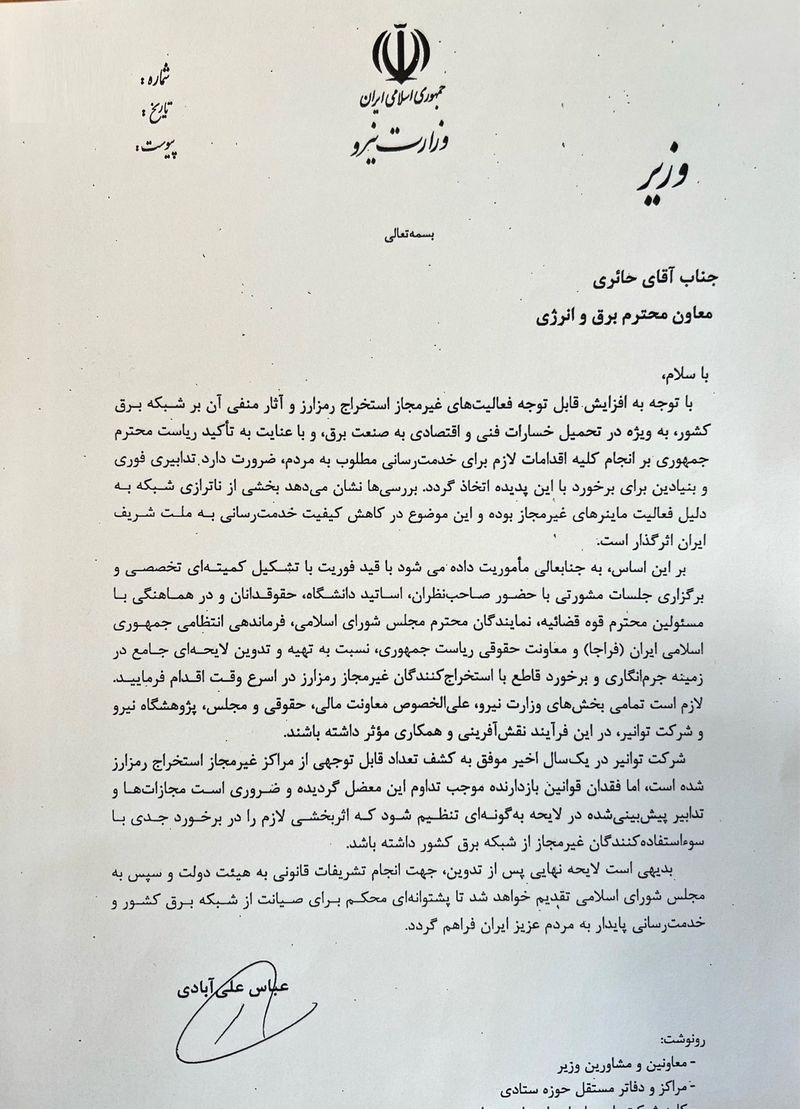 جمهوری اسلامی ایران
وزارت نیرو
شماره :
تاریخ :
پیوست :
وزیر
بسمه‌تعالی
جناب آقای حائری
معاون محترم برق و انرژی
با سلام،
با توجه به افزایش قابل توجه فعالیت‌های غیرمجاز استخراج رمزارز و آثار منفی آن بر شبکه برق
کشور، به ویژه در تحمیل خسارات فنی و اقتصادی به صنعت برق، و با عنایت به تأکید ریاست محترم
جمهوری بر انجام کلیه اقدامات لازم برای خدمت‌رسانی مطلوب به مردم، ضرورت دارد تدابیری فوری
و بنیادین برای برخورد با این پدیده اتخاذ گردد. بررسی‌ها نشان می‌دهد بخشی از ناترازی شبکه به
دلیل فعالیت ماینرهای غیرمجاز بوده و این موضوع در کاهش کیفیت خدمت‌رسانی به ملت شریف
ایران اثرگذار است.
بر این اساس، به جنابعالی مأموریت داده می شود با قید فوریت با تشکیل کمیته‌ای تخصصی و
برگزاری جلسات مشورتی با حضور صاحب‌نظران، اساتید دانشگاه، حقوقدانان و در هماهنگی با
مسئولین محترم قوه قضائیه، نمایندگان محترم مجلس شورای اسلامی، فرماندهی انتظامی جمهوری
اسلامی ایران (فراجا) و معاونت حقوقی ریاست جمهوری، نسبت به تهیه و تدوین لایحه‌ای جامع در
زمینه جرم‌انگاری و برخورد قاطع با استخراج‌کنندگان غیرمجاز رمزارز در اسرع وقت اقدام فرمایید.
لازم است تمامی بخش‌های وزارت نیرو، علی‌الخصوص معاونت مالی، حقوقی و مجلس، پژوهشگاه نیرو
و شرکت توانیر، در این فرآیند نقش‌آفرینی و همکاری مؤثر داشته باشند.
شرکت توانیر در یک‌سال اخیر موفق به کشف تعداد قابل توجهی از مراکز غیرمجاز استخراج رمزارز
شده است، اما فقدان قوانین بازدارنده موجب تداوم این معضل گردیده و ضروری است مجازات‌ها و
تدابیر پیش‌بینی‌شده در لایحه به‌گونه‌ای تنظیم شود که اثربخشی لازم را در برخورد جدی با
سوءاستفاده‌کنندگان غیرمجاز از شبکه برق کشور داشته باشد.
بدیهی است لایحه نهایی پس از تدوین، جهت انجام تشریفات قانونی به هیئت دولت و سپس به
مجلس شورای اسلامی تقدیم خواهد شد تا پشتوانه‌ای محکم برای صیانت از شبکه برق کشور و
خدمت‌رسانی پایدار به مردم عزیز ایران فراهم گردد.
عباس علی‌آبادی
رونوشت:
- معاونین و مشاورین وزیر
- مراکز و دفاتر مستقل حوزه ستادی